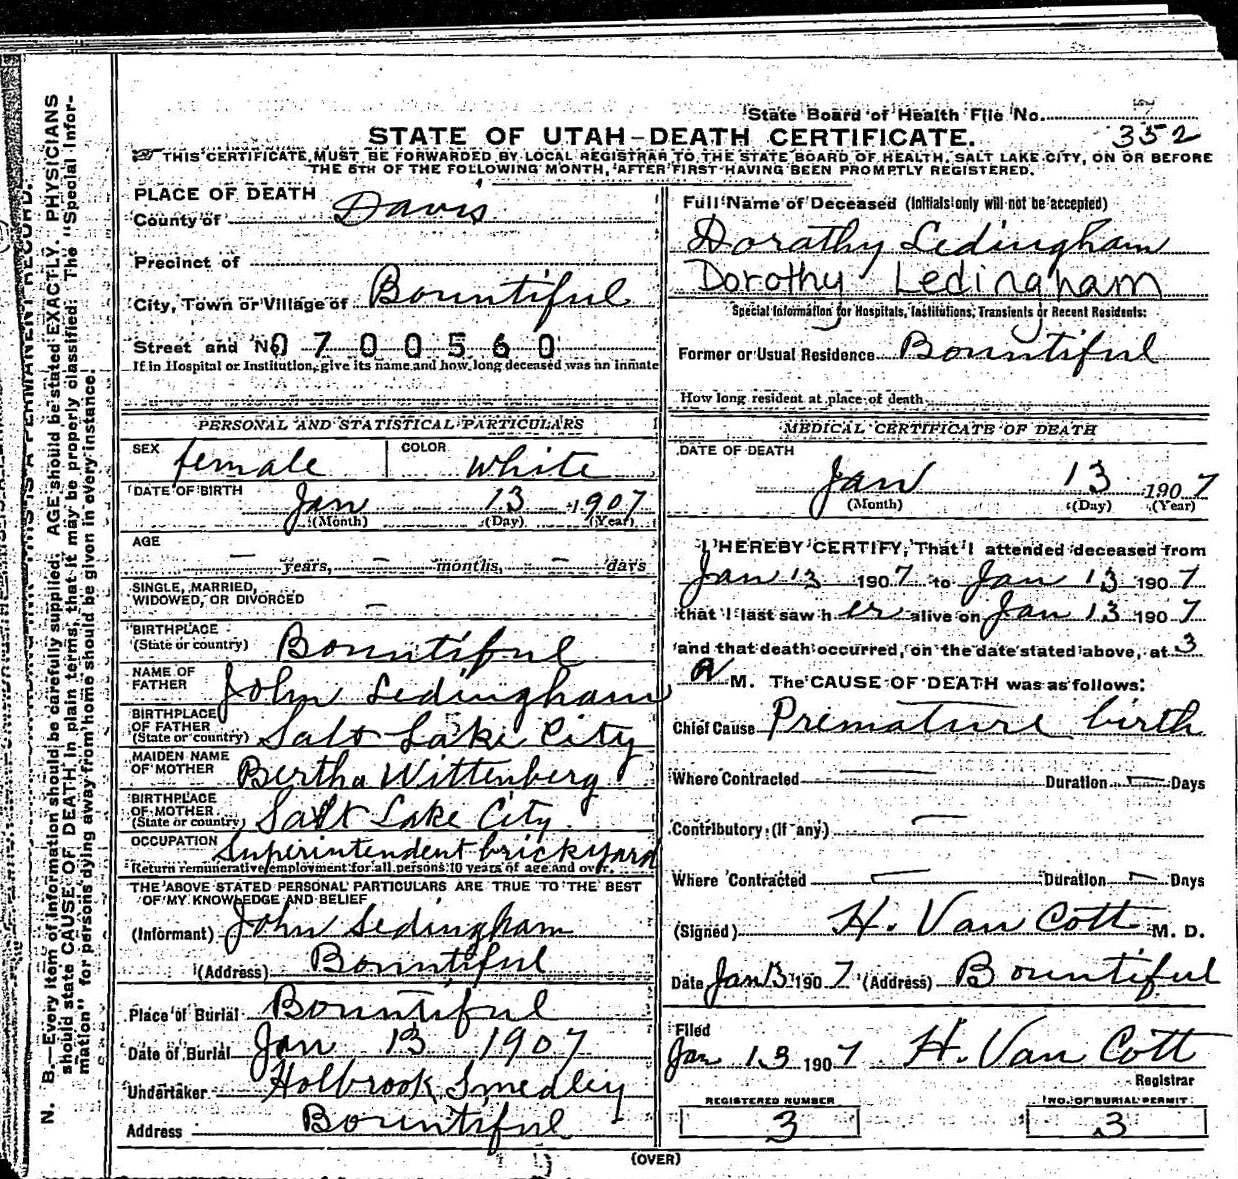 State Board of Health File No.
352
STATE OF UTAH—DEATH CERTIFICATE.
THIS CERTIFICATE MUST BE FORWARDED BY LOCAL REGISTRAR TO THE STATE BOARD OF HEALTH, SALT LAKE CITY, ON OR BEFORE
THE 5TH OF THE FOLLOWING MONTH, AFTER FIRST HAVING BEEN PROMPTLY REGISTERED.
N. B.—Every item of information should be carefully supplied. AGE should be stated EXACTLY. PHYSICIANS
should state CAUSE OF DEATH in plain terms, that it may be properly classified. The "Special Infor-
mation" for persons dying away from home should be given in every instance.
THIS IS A PERMANENT RECORD.
PLACE OF DEATH
County of Davis
Precinct of
City, Town or Village of Bountiful
Street and No. 0700560
If in Hospital or Institution, give its name and how long deceased was an inmate
PERSONAL AND STATISTICAL PARTICULARS
SEX female COLOR White
DATE OF BIRTH Jan 13 1907
(Month) (Day) (Year)
AGE
— years, — months, — days
SINGLE, MARRIED,
WIDOWED, OR DIVORCED —
BIRTHPLACE
(State or country) Bountiful
NAME OF
FATHER John Ledingham
BIRTHPLACE
OF FATHER
(State or country) Salt Lake City
MAIDEN NAME
OF MOTHER Bertha Wittenberg
BIRTHPLACE
OF MOTHER
(State or country) Salt Lake City
OCCUPATION Superintendent brickyard
Return remunerative employment for all persons 10 years of age and over.
THE ABOVE STATED PERSONAL PARTICULARS ARE TRUE TO THE BEST
OF MY KNOWLEDGE AND BELIEF
(Informant) John Ledingham
(Address) Bountiful
Place of Burial Bountiful
Date of Burial Jan 13 1907
Undertaker Holbrook Smedley
Address Bountiful
Full Name of Deceased (Initials only will not be accepted)
Dorathy Ledingham
Dorothy Ledingham
Special Information for Hospitals, Institutions, Transients or Recent Residents:
Former or Usual Residence Bountiful
How long resident at place of death
MEDICAL CERTIFICATE OF DEATH
DATE OF DEATH
Jan 13 1907
(Month) (Day) (Year)
I HEREBY CERTIFY, That I attended deceased from
Jan 13 1907 to Jan 13 1907
that I last saw her alive on Jan 13 1907
and that death occurred, on the date stated above, at 3
A M. The CAUSE OF DEATH was as follows:
Chief Cause Premature birth
Where Contracted — Duration — Days
Contributory (If any) —
Where Contracted — Duration — Days
(Signed) H. Van Cott M. D.
Date Jan 13 1907 (Address) Bountiful
Filed
Jan 13 1907 H. Van Cott
Registrar
REGISTERED NUMBER
3
NO. OF BURIAL PERMIT
3
(OVER)